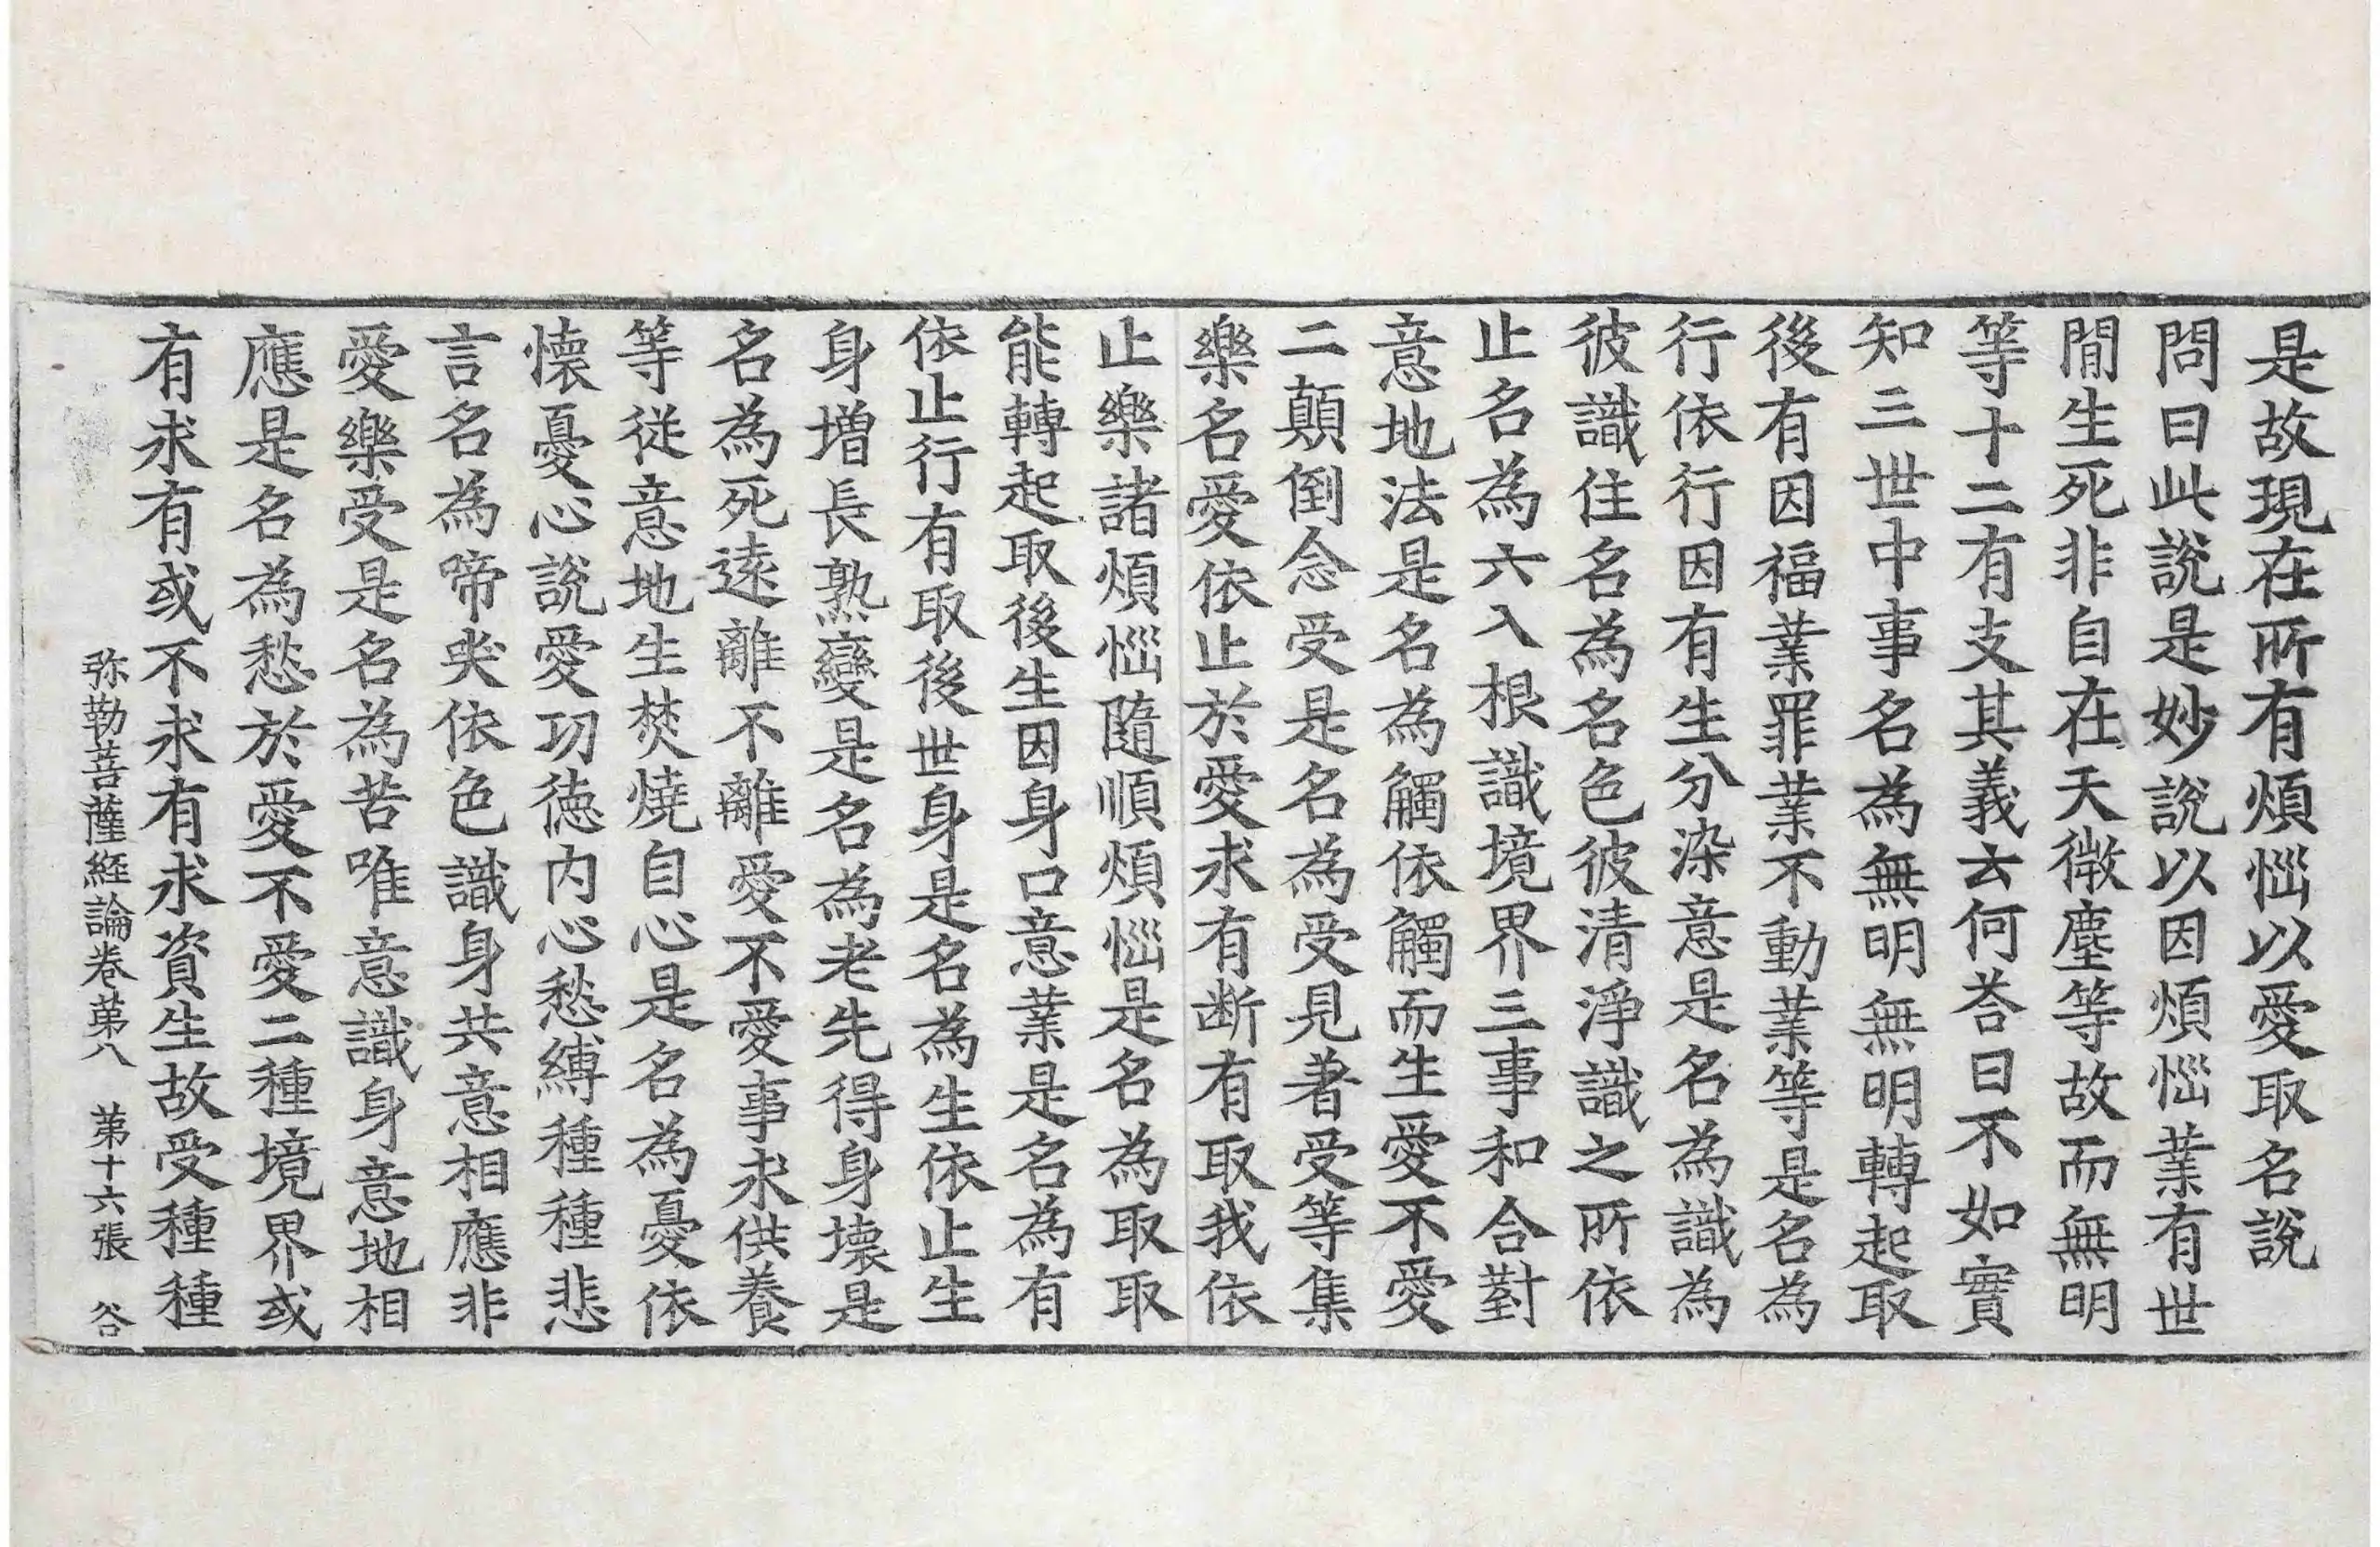 是故現在所有煩惱以愛取名說
問曰此說是妙說以因煩惱業有世
閒生死非自在天微塵等故而無明
等十二有支其義云何荅曰不如實
知三世中事名為無明無明轉起取
後有因福業罪業不動業等是名為
行依行因有生分染意是名為識為
彼識住名為名色彼清淨識之所依
止名為六入根識境界三事和合對
意地法是名為觸依觸而生愛不愛
二顛倒念受是名為受見著受等集
樂名愛依止於愛求有断有取我依
止樂諸煩惱隨順煩惱是名為取取
能轉起取後生因身口意業是名為有
依止行有取後世身是名為生依止生
身增長熟變是名為老先得身壞是
名為死遠離不離愛不愛事求供養
等從意地生焚燒自心是名為憂依
懷憂心說愛功德内心愁縛種種悲
言名為啼哭依色識身共意相應非
愛樂受是名為苦唯意識身意地相
應是名為愁於愛不愛二種境界或
有求有或不求有求資生故受種種
弥勒菩薩経論卷苐八 苐十六張 谷